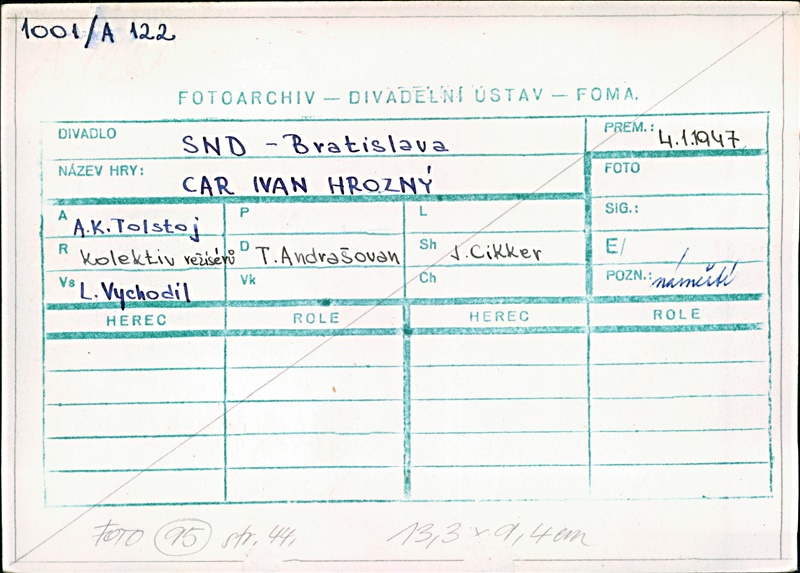 1001/A 122
FOTOARCHIV — DIVADELNÍ ÚSTAV — FOMA.
DIVADLO SND - Bratislava PREM.: 4.1.1947
NÁZEV HRY: CAR IVAN HROZNÝ FOTO
A A.K. Tolstoj P L SIG.:
R Kolektiv režisérů D T. Andrašovan Sh J. Cikker E/
Vs L. Vychodil Vk Ch POZN.: náměstí
HEREC ROLE HEREC ROLE
FOTO 95 str. 44. 13,3 x 9,4 cm